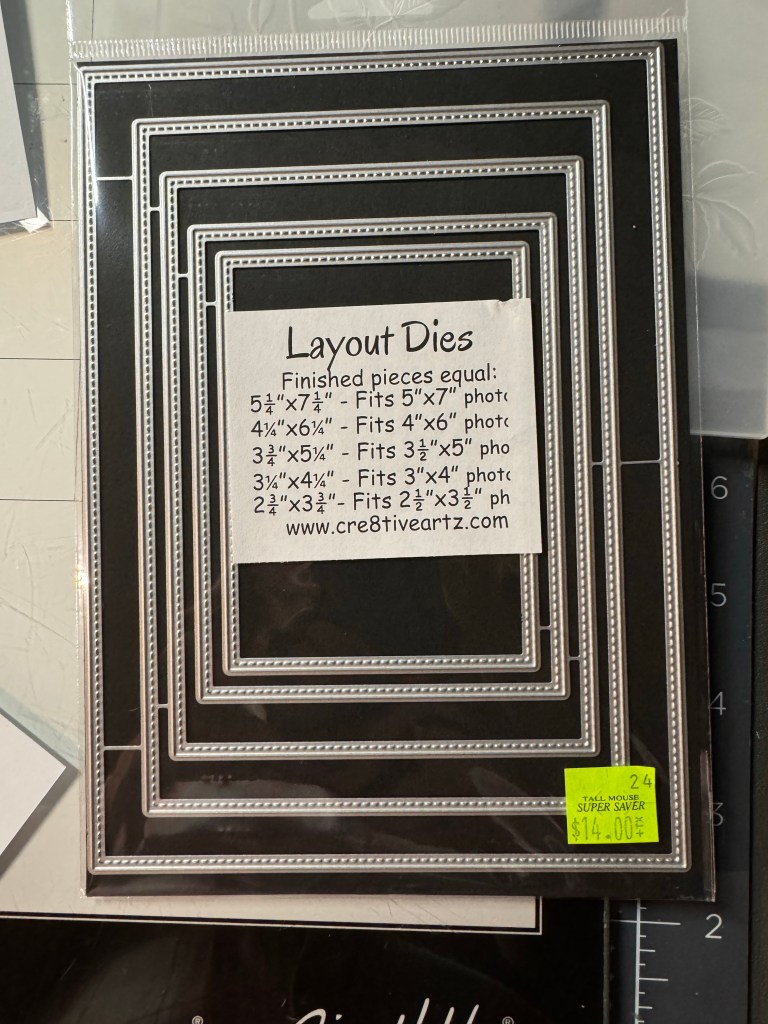 Layout Dies
Finished pieces equal:
5¼"x7¼" - Fits 5"x7" phot
4¼"x6¼" - Fits 4"x6" phot
3¾"x5¼" - Fits 3½"x5" pho
3¼"x4¼" - Fits 3"x4" phot
2¾"x3¾"- Fits 2½"x3½" ph
www.cre8tiveartz.com
6
5
4
24
TALL MOUSE
SUPER SAVER
$14.00
3
2
® ®